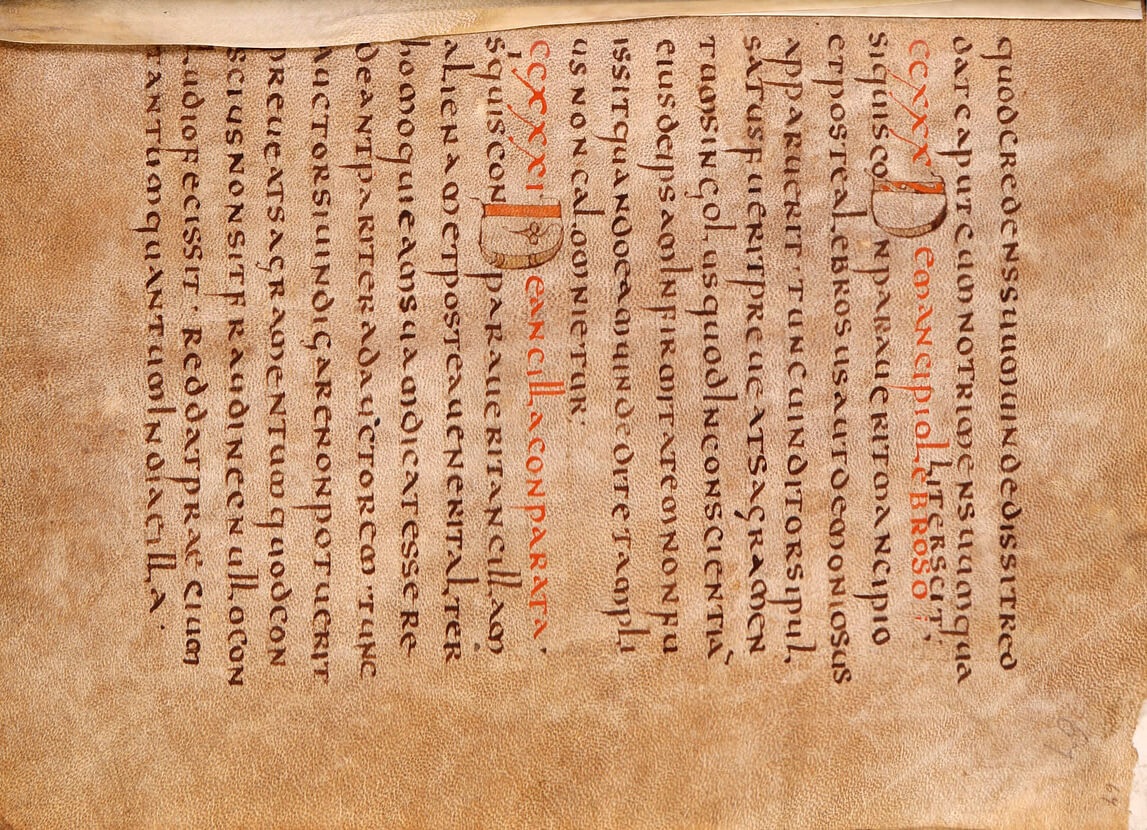 67
quod credens suum uindedissit red
dat caput cum notrimen suum qua
liter scit;
CCXXX De mancipio lebroso :
si quis conparauerit mancipio
et postea lebrosus aut demoniosus
apparuerit · tunc uinditor si pul
satus fuerit preueat sagramen
tum singolus quod in conscientia
eius de ipsam infirmitatem non fu
issit quando eam uindedit et ampli
us non calomnietur:
CCXXXI De ancilla conparata ·
si quis conparauerit ancillam
alienam et postea uenerit alter
homo qui eam suam dicat esse re
deant pariter ad auctorem · tunc
auctor si uindigare non potuerit
preueat sagramentum quod con
scius non sit fraudi nec nullo con
ludio fecissit · reddat prae cium
tantum quantum in dia cilla ·